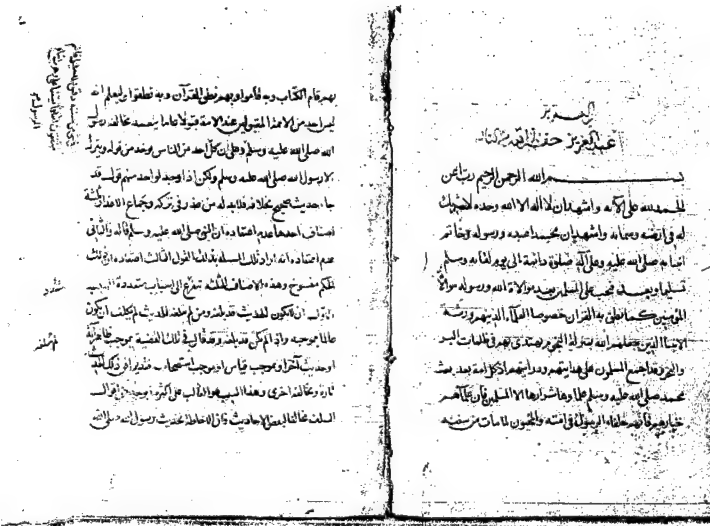 عبد العزيز
بسم الله الرحمن الرحيم رب
الحمد لله على آلائه واشهد ان لا اله الا الله وحده لا شريك
له في ارضه وسمائه واشهد ان محمدا عبده ورسوله وخاتم
انبيائه صلى الله عليه وعلى آله صلوة دائمة الى يوم لقائه وسلم
تسليما وبعد فيجب على المسلمين بعد موالاة الله ورسوله موالاة
المؤمنين كما نطق به القرآن خصوصا العلماء الذين هم ورثة
الانبياء الذين جعلهم الله بمنزلة النجوم يهتدى بهم في ظلمات البر
والبحر وقد اجمع المسلمون على هدايتهم ودرايتهم اذ كل امة بعد مبعث
محمد صلى الله عليه وسلم علماؤها شرارها الا المسلمين فان علماءهم
خيارهم فانهم خلفاء الرسول في امته والمحيون لما مات من سنته
بهم قام الكتاب وبه قاموا وبهم نطق القرآن وبه نطقوا وليعلم انه
ليس احد من الائمة المقبولين عند الامة قبولا عاما يتعمد مخالفة رسول
الله صلى الله عليه وسلم وعلى ان كل احد من الناس يؤخذ من قوله ويترك
الا رسول الله صلى الله عليه وسلم ولكن اذا وجد لواحد منهم قول قد
جاء حديث صحيح بخلافه فلا بد له من عذر في تركه وجماع الاعذار ثلثة
اصناف احدها عدم اعتقاده ان النبي صلى الله عليه وسلم قاله والثاني
عدم اعتقاده انه اراد تلك المسئلة بذلك القول الثالث اعتقاده ان ذلك
الحكم منسوخ وهذه الاصناف الثلثة تتفرع الى اسباب متعددة السبب
الاول ان لا يكون الحديث قد بلغه ومن لم يبلغه الحديث لم يكلف ان يكون
عالما بموجبه واذا لم يكن قد بلغه وقد قال في تلك القضية بموجب ظاهر آية
او حديث آخر او بموجب قياس او بموجب استصحاب فقد يوافق ذلك الحديث
تارة ويخالفه اخرى وهذا السبب هو الغالب على اكثر ما يوجد من اقوال
السلف مخالفا لبعض الاحاديث فان الاحاطة بحديث رسول الله صلى الله